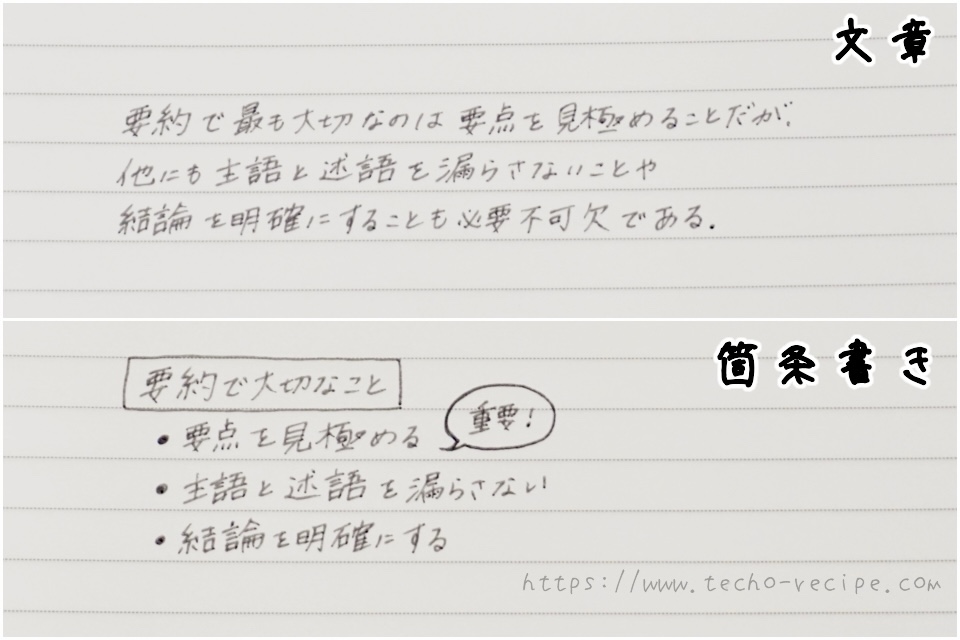 文章
要約で最も大切なのは要点を見極めることだが、
他にも主語と述語を漏らさないことや
結論を明確にすることも必要不可欠である.
箇条書き
要約で大切なこと
・要点を見極める
重要!
・主語と述語を漏らさない
・結論を明確にする
https://www.techo-recipe.com